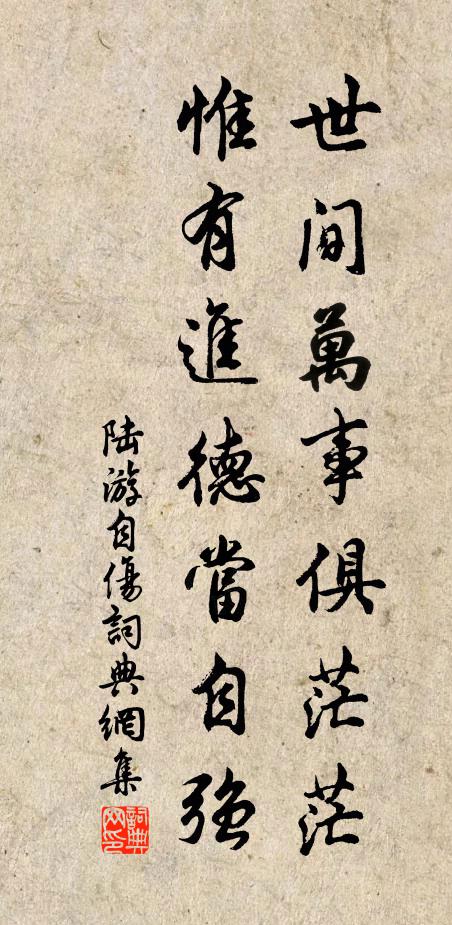 世間萬事俱茫茫
惟有進德當自強
陆游自傷詞典網集
詞典网印